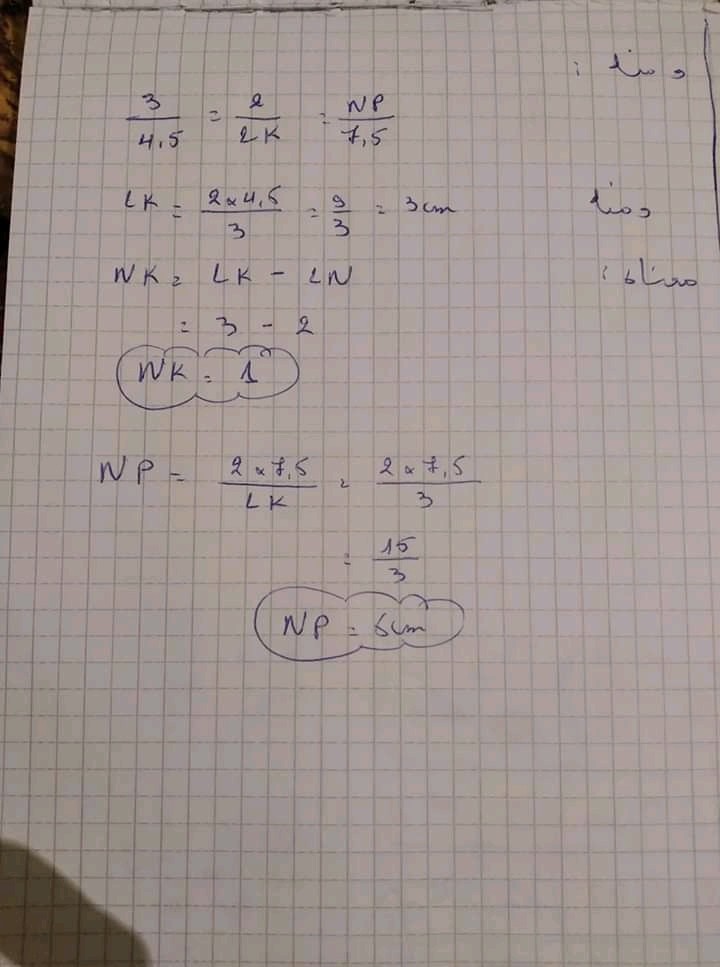 ومنه :
3/4,5 = 2/LK = NP/7,5
LK = 2×4,5/3 = 9/3 = 3cm ومنه
NK = LK - LN
= 3 - 2
NK = 1
NP = 2×7,5/LK = 2×7,5/3
= 15/3
NP = 5cm